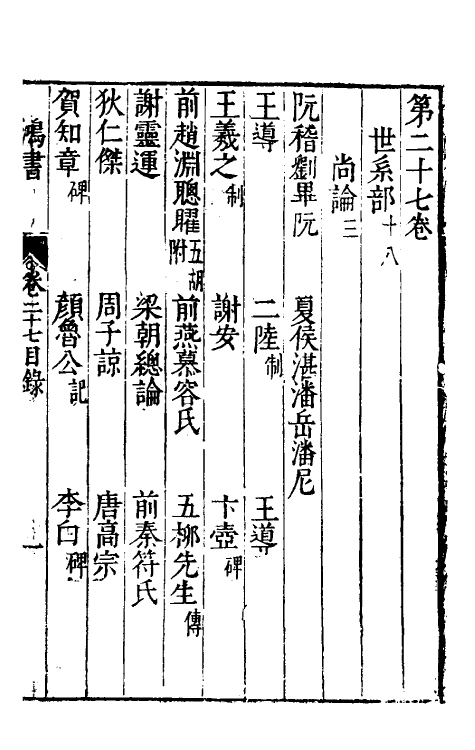 第二十七卷
世系部十八
尚論三
阮嵇劉畢阮 夏侯湛潘岳潘尼
王導 二陸制 王導
王羲之制 謝安 卞壺碑
前趙淵聰曜五胡附 前燕慕容氏 五柳先生傳
謝靈運 梁朝總論 前秦苻氏
狄仁傑 周子諒 唐高宗
賀知章碑 顏魯公記 李白碑
鴻書 卷二十七目錄 一